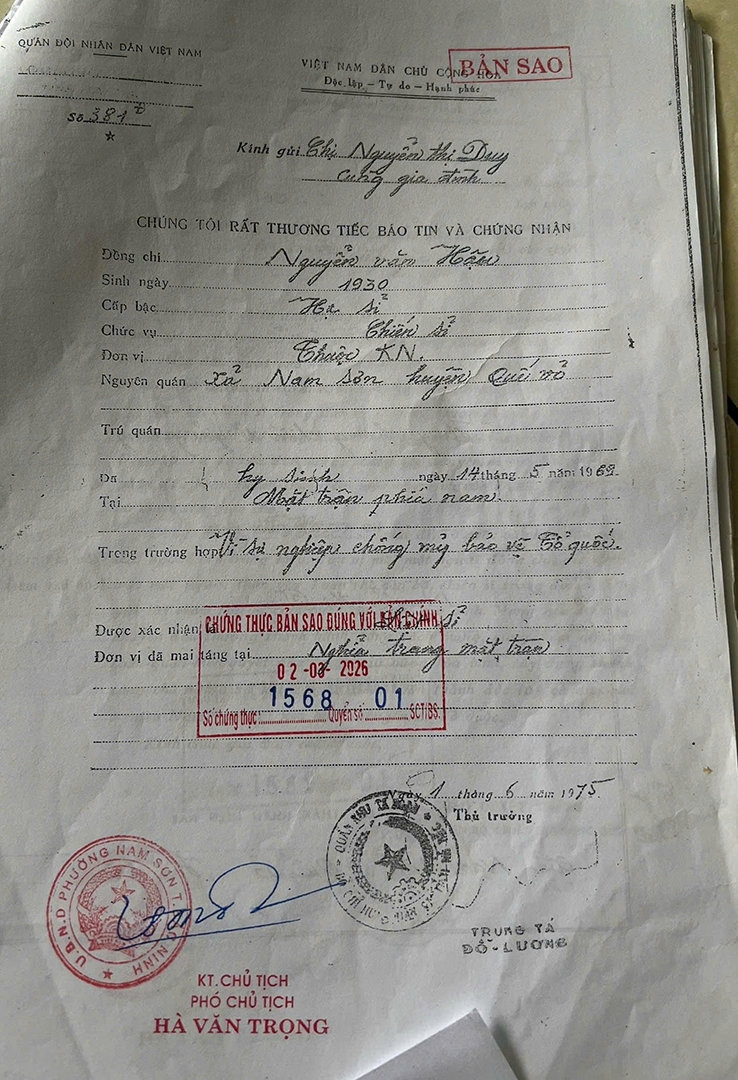 QUÂN ĐỘI NHÂN DÂN VIỆT NAM
VIỆT NAM DÂN CHỦ CỘNG HÒA
BẢN SAO
Độc lập - Tự do - Hạnh phúc
Số 381
Kính gửi Chị Nguyễn thị Duy
Cùng gia đình
CHÚNG TÔI RẤT THƯƠNG TIẾC BÁO TIN VÀ CHỨNG NHẬN
Đồng chí Nguyễn văn Hậu
Sinh ngày 1930
Cấp bậc Hạ sĩ
Chức vụ Chiến sĩ
Đơn vị Thuộc KN.
Nguyên quán Xã Nam Sơn huyện Quế võ
Trú quán
Đã hy sinh ngày 14 tháng 5 năm 1969
Tại Mặt trận phía nam.
Trong trường hợp Vì sự nghiệp chống mỹ bảo vệ Tổ quốc.
Được xác nhận là sĩ
Đơn vị đã mai táng tại Nghĩa trang mặt trận
CHỨNG THỰC BẢN SAO ĐÚNG VỚI BẢN CHÍNH
02-03-2026
1568 01
Số chứng thực: Quyển số SCT/BS.
Ngày 1 tháng 6 năm 1975
Thủ trưởng
TRUNG TÁ
ĐỖ-LƯƠNG
U.B.N.D PHƯỜNG NAM SƠN T. NINH
KT.CHỦ TỊCH
PHÓ CHỦ TỊCH
HÀ VĂN TRỌNG